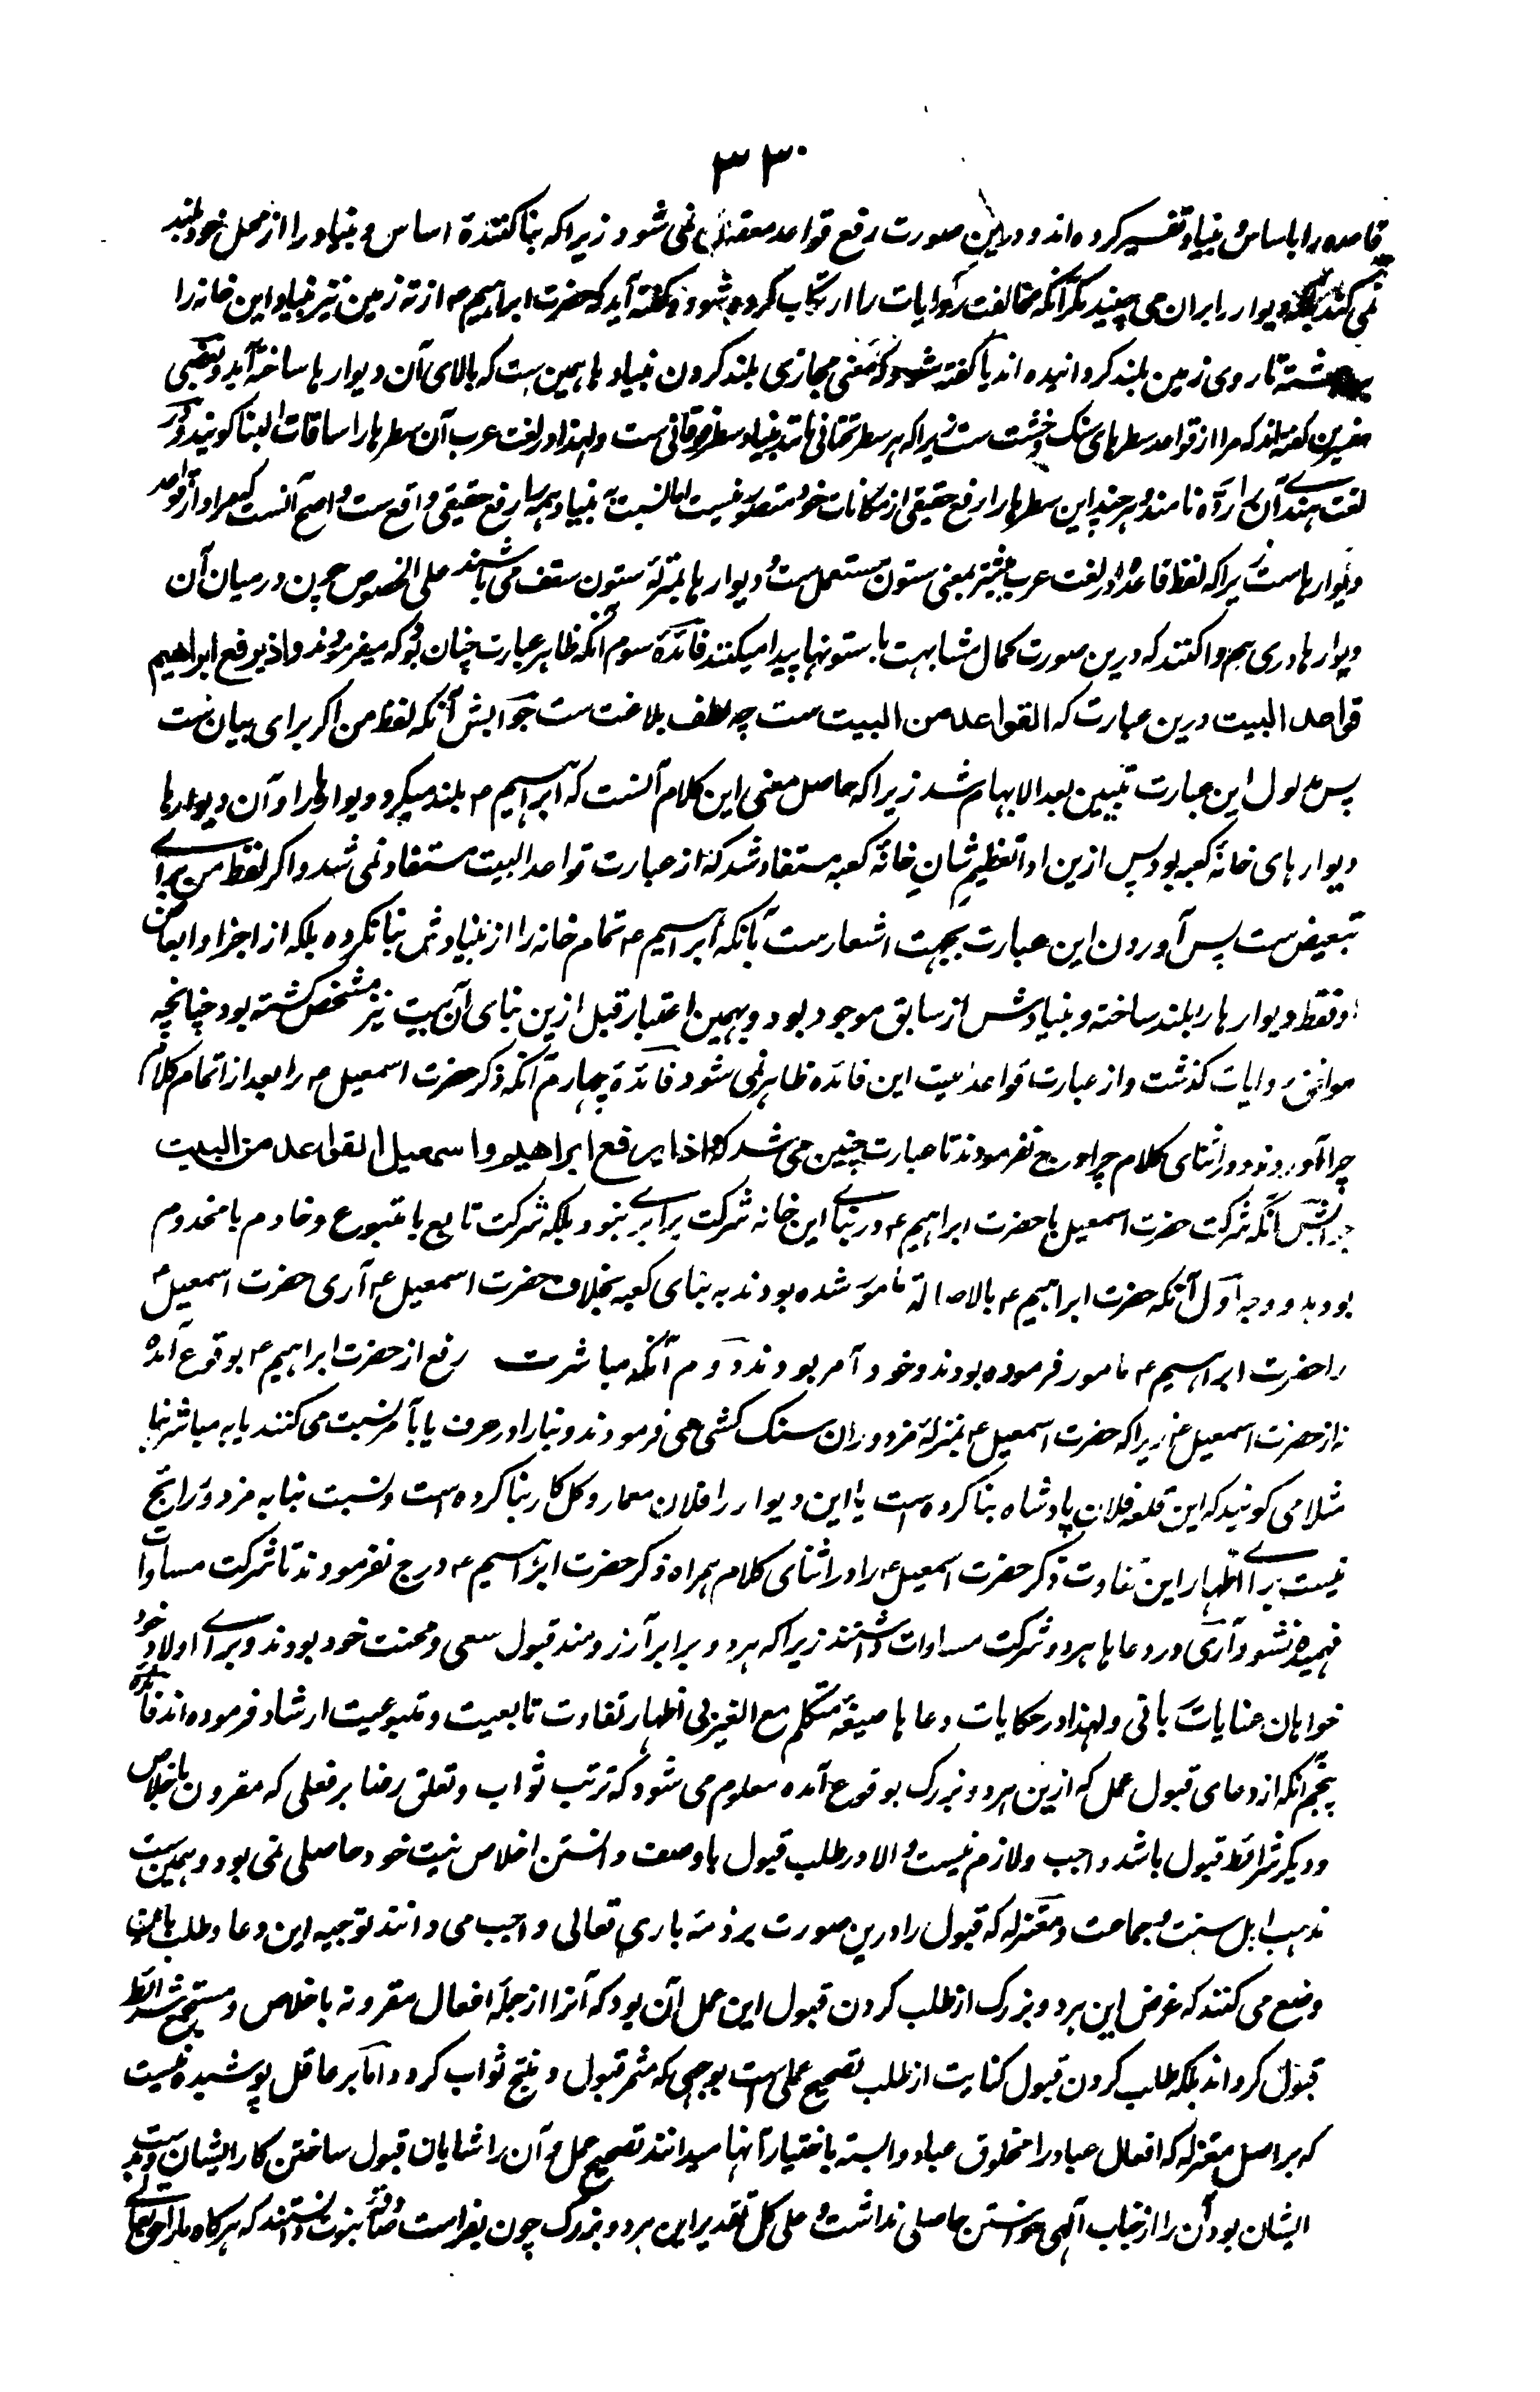 ۳۳۰
قاعده را باساس و بنیاد تفسیر کرده‌اند و درین صورت رفع قواعد معقول نمی شود زیرا که بنا کننده اساس و بنیاد را از محل خود بلند
نمی کند بلکه دیوار را بران می چیند مگر آنکه مخالفت روایات را ارتکاب کرده شود و گفته آید که حضرت ابراهیم ۴ از ته زمین نیز بنیاد این خانه را
تا روی زمین بلند گردانیده اند یا گفته شود که معنی مجازی بلند کردن بنیاد ها همین ست که بالای آن دیوار ها ساخته آید و بعضی
مفسرین گفته اند که مراد از قواعد سطرهای سنگ و خشت ست زیرا که هر سطر تحتانی مانند بنیاد سطر فوقانی ست و لهذا در لغت عرب آن سطرها را ساقات البنا گویند و در
لغت هندی آن را ردّه نامند و هر چند این سطرها را رفع حقیقی از مکانات خود متصور نیست اما بنسبت بنیاد همه را رفع حقیقی واقع ست و اصح آنست که مراد از قواعد
دیوارهاست زیرا که لفظ قاعده در لغت عرب بیشتر بمعنی ستون مستعمل ست و دیوار ها بمنزلهٔ ستون سقف می باشند علی الخصوص چون در میان آن
دیوارها دری هم وا کنند که درین صورت کمال مشابهت با ستونها پیدا میکنند فائدهٔ سوم آنکه ظاهر عبارت چنان بود که میفرمودند و اذ یرفع ابراهیم
قواعد البیت درین عبارت که القواعد من البیت ست چه لطف بلاغت ست جوابش آنکه لفظ من اگر برای بیان ست
پس مدلول این عبارت تبیین بعد الابهام شد زیرا که حاصل معنی این کلام آنست که ابراهیم ۴ بلند میکرد دیوارها را و آن دیوارها
دیوارهای خانهٔ کعبه بود پس ازین ادا تعظیم شانِ خانهٔ کعبه مستفاد شد که از عبارت قواعد البیت مستفاد نمی شد و اگر لفظ من برای
تبعیض ست پس آوردن این عبارت بجهت اشعارست بآنکه ابراهیم ۴ تمام خانه را از بنیادش بنا نکرده بلکه از اجزا و ابعاض
او فقط دیوارها را بلند ساخته و بنیادش از سابق موجود بود و بهمین اعتبار قبل ازین بنای آن بیت نیز مشخص گشته بود چنانچه
موافق روایات گذشت و از عبارت قواعد بیت این فائده ظاهر نمی شود فائدهٔ چهارم آنکه ذکر حضرت اسمعیل ۴ را بعد از اتمام کلام
چرا آوردند و در اثنای کلام چرا درج نفرمودند تا عبارت چنین می شد که و اذ یرفع ابراهیم و اسمعیل القواعد من البیت
جوابش آنکه شرکت حضرت اسمعیل با حضرت ابراهیم ۴ در بنای این خانه شرکت برابری نبود بلکه شرکت تابع با متبوع و خادم با مخدوم
بود بدو وجه اول آنکه حضرت ابراهیم ۴ بالاصالة مامور شده بودند به بنای کعبه بخلاف حضرت اسمعیل ۴ آری حضرت اسمعیل ۴
را حضرت ابراهیم ۴ مامور فرموده بودند و خود آمر بودند دوم آنکه مباشرت رفع از حضرت ابراهیم ۴ بوقوع آمده
نه از حضرت اسمعیل ۴ زیرا که حضرت اسمعیل ۴ بمنزلهٔ مزدوران سنگ کشی می فرمودند و بنا را در عرف یا بآمر نسبت می کنند یا به مباشر بنا
مثلا می گویند که این قلعه فلان پادشاه بنا کرده است یا این دیوار را فلان معمار و گل کار بنا کرده است و نسبت بنا به مزدور رائج
نیست برای اظهار این تفاوت ذکر حضرت اسمعیل ۴ را در اثنای کلام همراه ذکر حضرت ابراهیم ۴ درج نفرمودند تا شرکت مساوات
فهمیده نشود آری در دعاها هر دو شرکت مساوات داشتند زیرا که هر دو برابر آرزومند قبول سعی و محنت خود بودند و برای اولاد خود
خواهان عنایات باقی و لهذا در حکایات دعاها صیغهٔ متکلم مع الغیر بی اظهار تفاوت تابعیت و متبوعیت ارشاد فرموده اند فائدهٔ
پنجم آنکه از دعای قبول عمل که ازین هر دو بزرگ بوقوع آمده معلوم می شود که ترتب ثواب و تعلق رضا بر فعلی که مقرون باخلاص
و دیگر شرائط قبول باشد واجب و لازم نیست و الا در طلب قبول باوصف دانستن اخلاص نیت خود حاصلی نمی بود و همین ست
مذهب اهل سنت و جماعت و معتزله که قبول را درین صورت بر ذمهٔ باری تعالی واجب می دانند توجیه این دعا و طلب باین
وضع می کنند که غرض این هر دو بزرگ از طلب کردن قبول این عمل آن بود که آنرا از جملهٔ افعال مقرونه باخلاص و مستجمع شرائط
قبول گرداند بلکه طلب کردن قبول کنایت از طلب تصحیح عملی است بوجهی که مثمر قبول و منتج ثواب گردد اما بر عاقل پوشیده نیست
که بر اصل معتزله که افعال عباد را مخلوق عباد و وابسته باختیار آنها میدانند تصحیح عمل و آن را شایان قبول ساختن کار ایشان ست و بید
ایشان بود آن را از جناب آلهی خواستن حاصلی نداشت و علی کل تقدیر این هر دو بزرگ چون بفراست صادقهٔ نبوت دانستند که هرگاه ما را حق تعالی